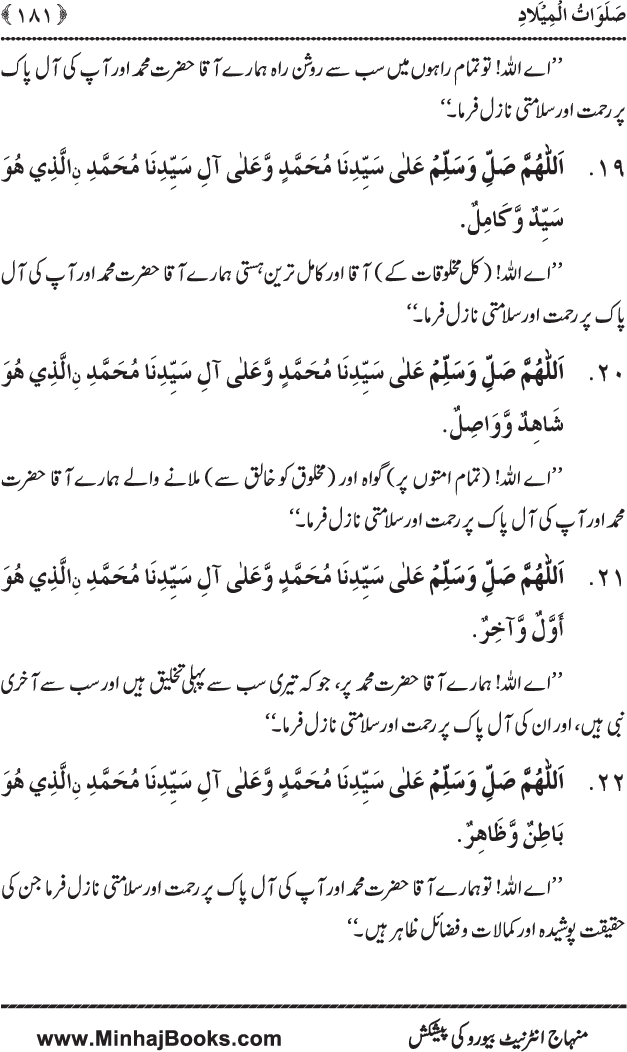 صَلَوَاتُ الْمِيْلَادِ ﴿١٨١﴾
’’اے اللہ! تو تمام راہوں میں سب سے روشن راہ ہمارے آقا حضرت محمد اور آپ کی آل پاک
پر رحمت اور سلامتی نازل فرما۔‘‘
١٩. اَللّٰهُمَّ صَلِّ وَسَلِّمْ عَلٰی سَيِّدِنَا مُحَمَّدٍ وَّعَلٰی آلِ سَيِّدِنَا مُحَمَّدِ نِ الَّذِي هُوَ
سَيِّدٌ وَّكَامِلٌ.
’’اے اللہ! (کل مخلوقات کے) آقا اور کامل ترین ہستی ہمارے آقا حضرت محمد اور آپ کی آل
پاک پر رحمت اور سلامتی نازل فرما۔‘‘
٢٠. اَللّٰهُمَّ صَلِّ وَسَلِّمْ عَلٰی سَيِّدِنَا مُحَمَّدٍ وَّعَلٰی آلِ سَيِّدِنَا مُحَمَّدِ نِ الَّذِي هُوَ
شَاهِدٌ وَّوَاصِلٌ.
’’اے اللہ! (تمام امتوں پر) گواہ اور (مخلوق کو خالق سے) ملانے والے ہمارے آقا حضرت
محمد اور آپ کی آل پاک پر رحمت اور سلامتی نازل فرما۔‘‘
٢١. اَللّٰهُمَّ صَلِّ وَسَلِّمْ عَلٰی سَيِّدِنَا مُحَمَّدٍ وَّعَلٰی آلِ سَيِّدِنَا مُحَمَّدِ نِ الَّذِي هُوَ
أَوَّلٌ وَّآخِرٌ.
’’اے اللہ! ہمارے آقا حضرت محمد پر، جو کہ تیری سب سے پہلی تخلیق ہیں اور سب سے آخری
نبی ہیں، اور ان کی آل پاک پر رحمت اور سلامتی نازل فرما۔‘‘
٢٢. اَللّٰهُمَّ صَلِّ وَسَلِّمْ عَلٰی سَيِّدِنَا مُحَمَّدٍ وَّعَلٰی آلِ سَيِّدِنَا مُحَمَّدِ نِ الَّذِي هُوَ
بَاطِنٌ وَّظَاهِرٌ.
’’اے اللہ! تو ہمارے آقا حضرت محمد اور آپ کی آل پاک پر رحمت اور سلامتی نازل فرما جن کی
حقیقت پوشیدہ اور کمالات و فضائل ظاہر ہیں۔‘‘
منہاج انٹرنیٹ بیورو کی پیشکش www.MinhajBooks.com